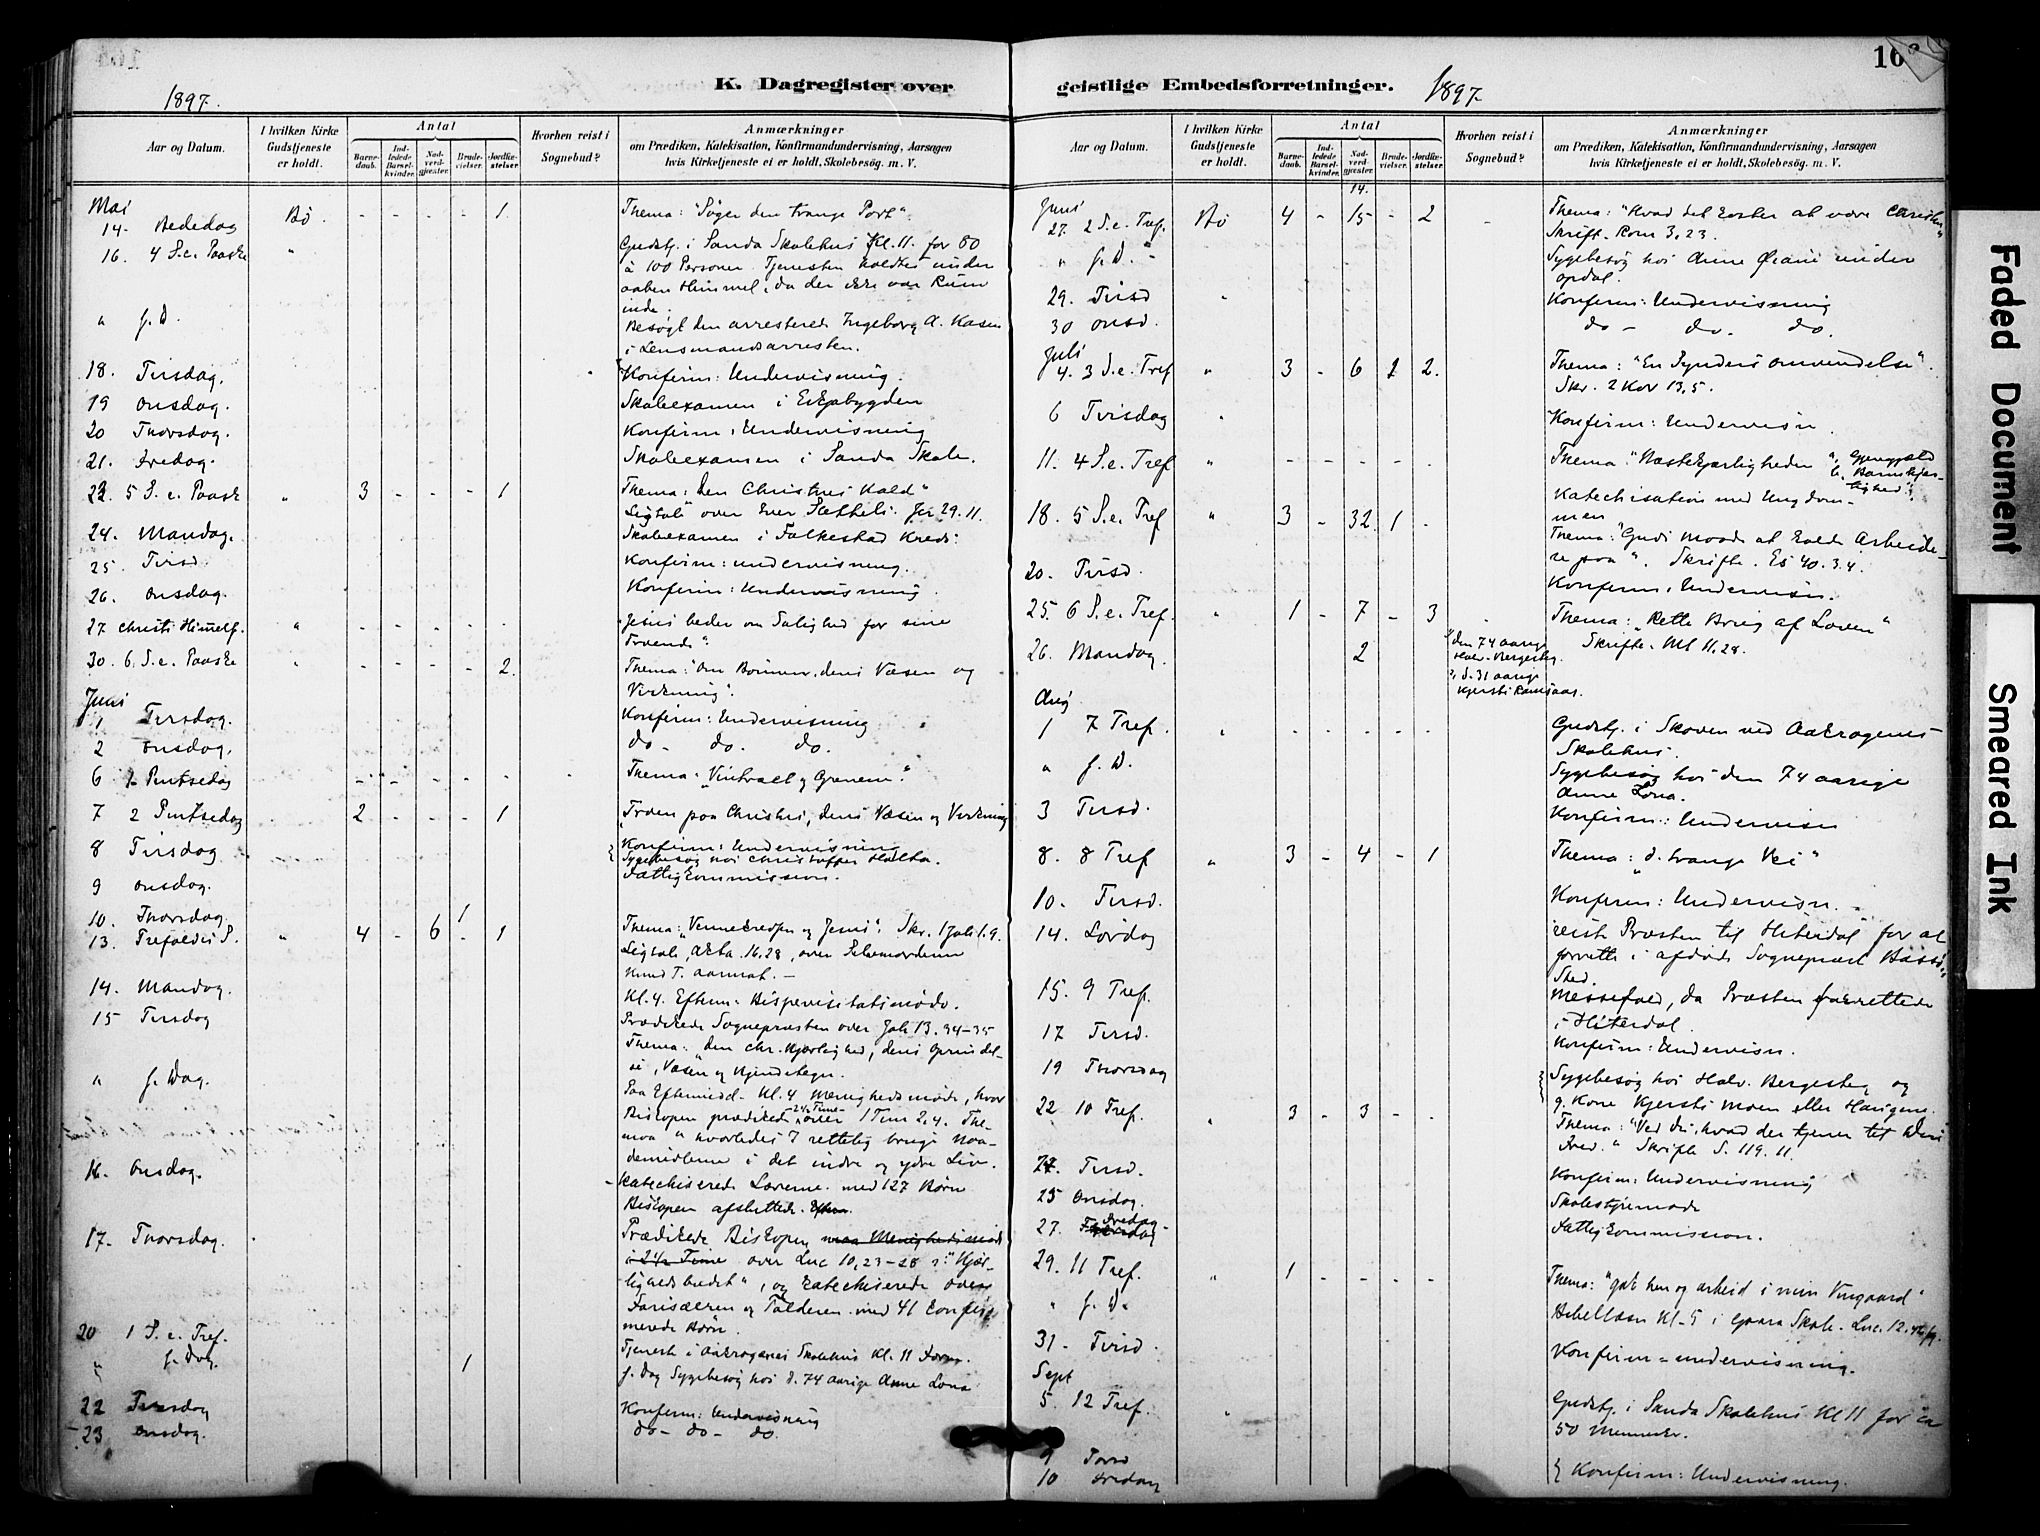 K. Dagregister over
geistlige Embedsforretninger.
1897.
1897.
Aar og Datum.
I hvilken Kirke Gudstjeneste er holdt.
Antal
Barne-daab.
Ind-ledede Barsel-kvinder.
Nad-verd-gjæster.
Brude-vielser.
Jordfæ-stelser.
Hvorhen reist i Sognebud?
Anmærkninger
om Prædiken, Katekisation, Konfirmandundervisning, Aarsagen
hvis Kirketjeneste ei er holdt, Skolebesøg. m. V.
Mai
14. Bededag Bø. - - - - 1. Thema: "Søger den trange Port".
16. 4 S. e. Paaske " Gudstj. i Sanda Skolehus Kl. 11. for 80
à 100 Personer. Tjenesten holdtes under
aaben Himmel, da der ikke var Rum
inde.
" s. D. Besøgt den arresterede Ingeborg A. Kasen
i Lensmandsarresten.
18. Tirsdag. Konfirm: Undervisning.
19 Onsdag. Skoleexamen i
20 Thorsdag. Konfirm: Undervisning
21. Fredag. Skoleexamen i Sanda Skole.
23. 5 S. e. Paaske " 3 - - - 1 Thema: "Den Christnes Kald"
Ligtale over
24. Mandag. Skoleexamen i Folkestad Kreds.
25. Tirsd. Konfirm: undervisning.
26. Onsdag. Konfirm: Undervisning.
27. Christi Himmelf. " - - - - - "Jesus beder om Salighed for sine
Troende".
30. 6. S. e. Paaske " - - - - 2. Thema: "Om Bønnen, dens Væsen og
Virkning".
Juni
1 Tirsdag. Konfirm: Undervisning
2 Onsdag. do - do. do.
6 1. Pintsedag - - - - - Thema: "Vintræet og Grenene."
7 2 Pintsedag 2 - - - 1 "Troen paa Christus, dens Væsen og Virkning
8 Tirsdag Konfirm: Undervisning
Sygebesøg hos Christoffer Haltha.
9 Onsdag. Fattigkommission.
10. Thorsdag. 1
13. Trefoldigh. S. " 4 - 6 - 1 Thema: "Vennekredsen og Jesus". Skr. 1 Joh 1.9.
Ligtale, Acta. 16,28, over Selvmorderen
Knud T. Aarnæs. -
14. Mandag. Kl. 4. Efterm. Bispevisitatsmøde.
15 Tirsdag Prædikede Sognepræsten over Joh 13. 34-35
Thema: "Den chr. Kjærlighed, dens Oprindel-
se, Væsen og Kjendetegn.
" s. Dag. Paa Eftermidd. Kl. 4 Menighedsmøde, hvor
Biskopen prædikede 2½ Time over 1 Tim 2,4. The-
maa "hvorledes I rettelig bruge Naa-
demidlerne i det indre og ydre Liv.
16. Onsdag. Katechiserede Lærerne med 127 Børn
Biskopen afsluttede.
17. Thorsdag. Prædikede Biskopen
over Luc 10,23-28 : "Kjær-
lighedsbudet", og katechiserede over
Farisæeren og Tolderen med 41 konfir-
merede Børn.
20 1 S. e. Tref. Tjeneste i Aakrogenes Skolehus Kl. 11 Form.
" s. Dag. 1 s. Dag Sygebesøg hos d. 74 aarige Anne Lona
22 Tirsdag Konfirm: Undervisning
23 Onsdag. do - do - do.
Aar og Datum.
I hvilken Kirke Gudstjeneste er holdt.
Antal
Barne-daab.
Ind-ledede Barsel-kvinder.
Nad-verd-gjæster.
Brude-vielser.
Jordfæ-stelser.
Hvorhen reist i Sognebud?
Anmærkninger
om Prædiken, Katekisation, Konfirmandundervisning, Aarsagen
hvis Kirketjeneste ei er holdt, Skolebesøg. m. V.
14.
Juni
27. 2 S. e. Tref. Bø 4 - 15 - 2 - Thema: "Hvad det koster at være Christen"
Skrift. Rom 3,23.
" s. D. Sygebesøg hos Anne
29. Tirsd " Konfirm: Undervisning
30 Onsd. do - do. do.
Juli
4. 3 S. e. Tref " 3 - 6 1 2. Thema: "En Synders Omvendelse".
Skr. 2 Kor 13,5.
6 Tirsdag Konfirm: Undervisn.
11. 4 S. e. Tref " - - - - - Thema: "Næstekjærligheden
Katechisation med Ungdom-
men
18. 5 S. e. Tref " 3 - 32. 1 - Thema: "Guds Maade at kalde Arbeide-
re paa". Skrifte. Es 40. 3.4.
20. Tirsd. Konfirm. Undervisn.
25. 6 S. e. Tref. " 1 - 7 - 3 Thema: "Rette Brug af Loven"
Skrifte. Mt 11,28.
26. Mandag. 2 1, den 74 aarige
Halv. Bergesteg.
2, d. 31 aarige
Kjersti
Aug.
1 7 Tref. " - - - - - Gudstj. i Skoven ved Aakrogenes
Skolehus.
" s. D. Sygebesøg hos den 74 aarige
Anne Lona.
3 Tirsd. Konfirm.: Undervisn
8. 8 Tref " 3 - 4 - 1 Thema: "d. trange Vei"
10. Tirsd. Konfirm: Undervisn.
14. Lørdag reiste Præsten til Hiterdal for at
forrette i afdøde Sognepræst
Sted.
15. 9 Tref. Messefald, da Præsten forrettede
i Hiterdal.
17 Tirsd. Konfirm: Undervisn.
19 Thorsdag Sygebesøg hos Halv. Bergesteg og
g. Kone Kjersti Moen eller Haugene.
22. 10 Tref. " 3 - 3 - - Thema: "Ved du, hvad der tjener til Din
Fred." Skrifte S. 119. 11.
24. Tirsd. Konfirm: Undervisning
25 Onsdag. Skolestyremøde
27. Fredag Fattigkommission.
29. 11 Tref. " 1 - - - - Thema: "gak hen og arbeid i min Viingaard"
" s. D. Bibellæsn Kl. 5 i Gaara Skole. Luc. 12.
31. Tirsd. Konfirm=undervisning.
Sept
5. 12 Tref. " Gudstj. i Sanda Skolehus Kl 11 for ca
50 Mennesker.
9 Torsd
10 Fredag } Konfirm: Undervisning.
Faded Document
Smeared Ink